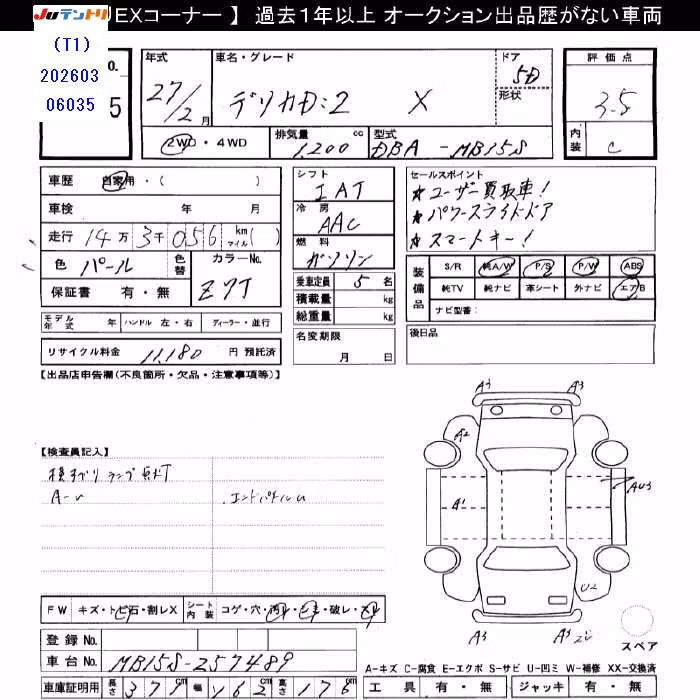 EXコーナー 】 過去１年以上 オークション出品歴がない車両
Juテントリ
(T1)
202603
06035
0.
5
年式
27/2月
車名・グレード
デリカD:2 X
ドア
5D
形状
評価点
3.5
内装
C
2WD・4WD
排気量
1,200 cc
型式
DBA-MB15S
車歴
自家用・( )
車検
年 月
走行
14万3千056 km マイル( )
色
パール
色替
カラーNo.
Z7T
保証書 有・無
モデル年式 年
ハンドル 左・右
ディーラー・並行
リサイクル料金 11,180 円 預託済
シフト
IAT
冷房
AAC
燃料
ガソリン
乗車定員 5 名
積載量 kg
総重量 kg
名変期限
月 日
セールスポイント
★ユーザー買取車!
★パワースライドドア
★スマートキー!
装備品
S/R 純A/W P/S P/W ABS
純TV 純ナビ 革シート 外ナビ エアB
ナビ型番:
後日品
【出品店申告欄(不良箇所・欠品・注意事項等)】
【検査員記入】
横すべりランプ点灯
A-U
エンドパネルU
A3 A3
A2
A1
AU3
U2
A3 A3
スペア
FW キズ・トビ石・割レX
シート内装 コゲ・穴・汚レ・シミ・破レ・スレ
登録No.
車台No. MB15S-257489
車庫証明用 長さ 371 幅 162 高さ 176 cm
A-キズ C-腐食 E-エクボ S-サビ U-凹ミ W-補修 XX-交換済
工具 有・無 ジャッキ 有・無